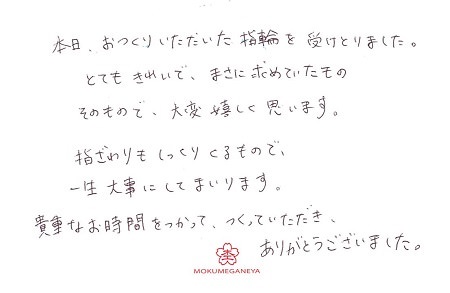 本日、おつくりいただいた指輪を受けとりました。
とてもきれいで、まさに求めていたもの
そのもので、大変嬉しく思います。
指ざわりもしっくりくるもので、
一生大事にしてまいります。
貴重なお時間をつかって、つくっていただき、
ありがとうございました。
MOKUMEGANEYA